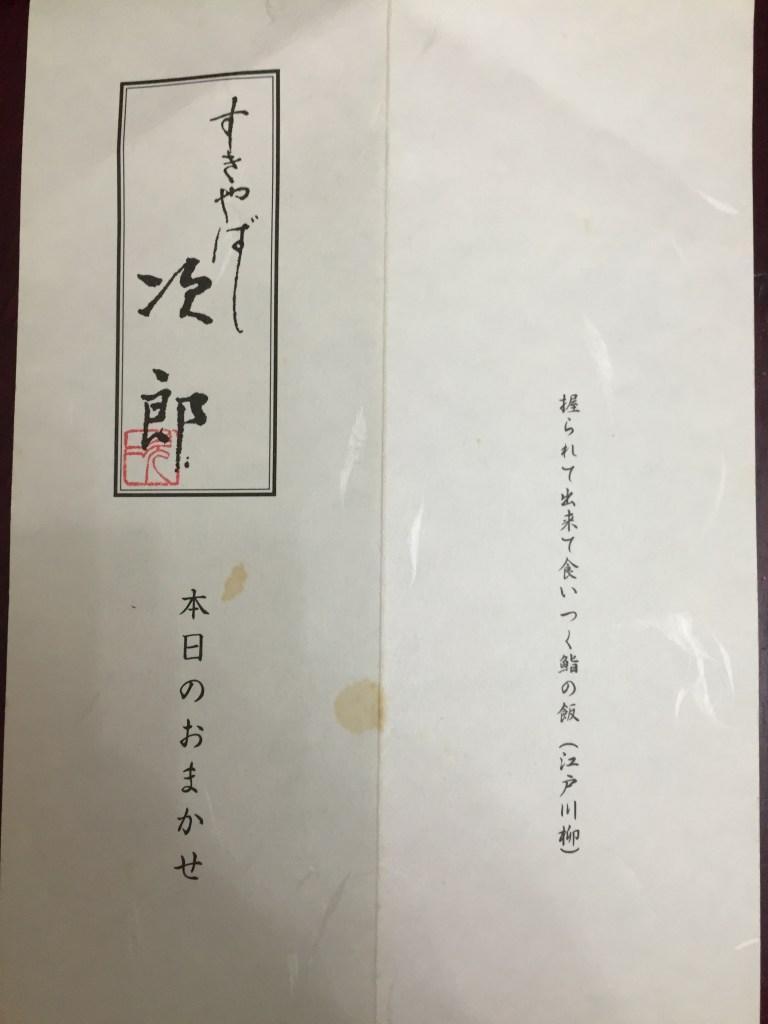 握られて出来て食いつく鮨の飯（江戸川柳）
すきやばし
次郎
本日のおまかせ